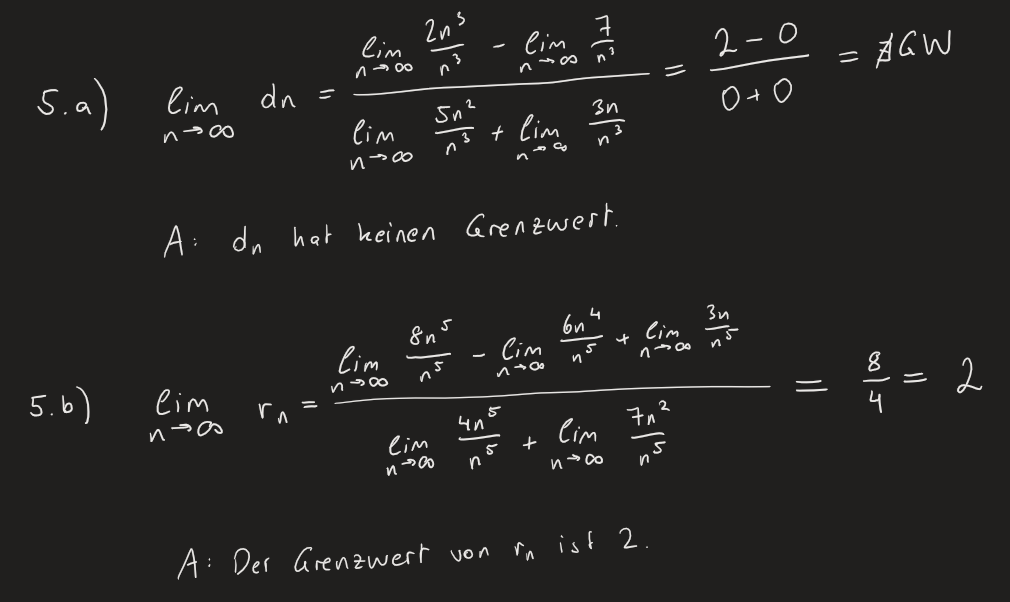 5.a) lim n→∞ dn = (lim n→∞ 2n³/n³ - lim n→∞ 7/n³) / (lim n→∞ 5n²/n³ + lim n→∞ 3n/n³) = (2-0)/(0+0) = ∄GW
A: dn hat keinen Grenzwert.
5.b) lim n→∞ rn = (lim n→∞ 8n⁵/n⁵ - lim n→∞ 6n⁴/n⁵ + lim n→∞ 3n/n⁵) / (lim n→∞ 4n⁵/n⁵ + lim n→∞ 7n²/n⁵) = 8/4 = 2
A: Der Grenzwert von rn ist 2.